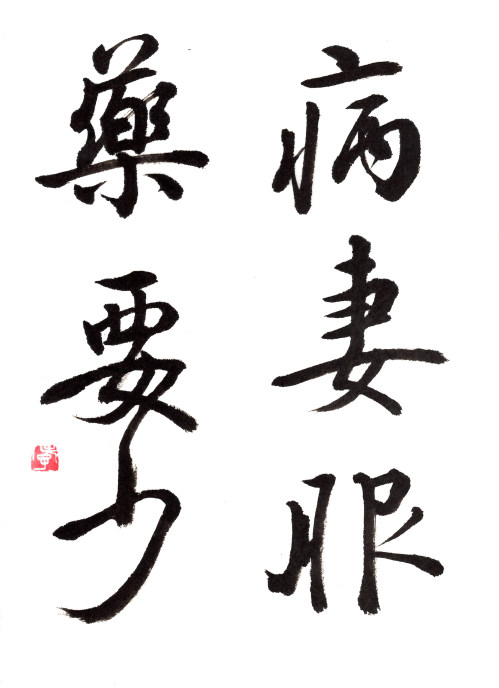 病妻服
藥要少